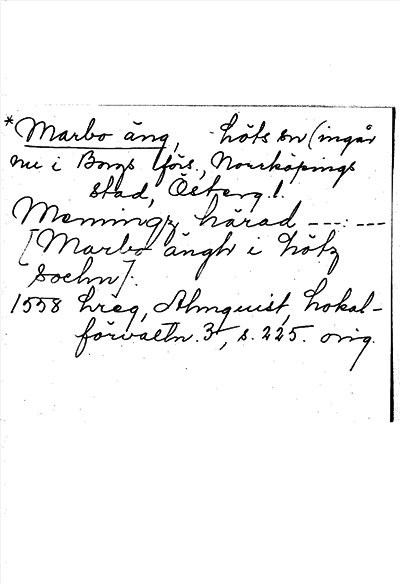 *Marbo äng, Löts sn (ingår
nu i Borgs förs., Norrköpings
stad, Östergl.
Memingz härad ---:---
[Marbo ängh i Lötz
sochn].
1558 Lreg, Almquist, Lokal-
förvaltn. 3, s. 225. orig.